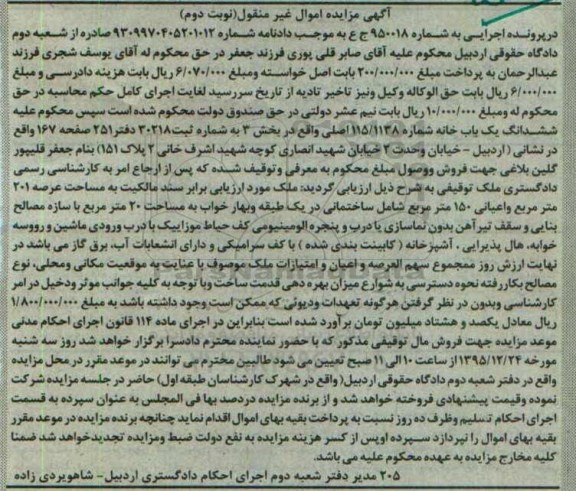 آگهی مزایده اموال غیر منقول(نوبت دوم)
درپرونده اجرایی به شماره ۹۵۰۰۱۸ ج ع به موجب دادنامه شماره ۹۳۰۹۹۷۰۴۰۵۲۰۱۰۱۲ صادره از شعبه دوم
دادگاه حقوقی اردبیل محکوم علیه آقای صابر قلی پوری فرزند جعفر در حق محکوم له آقای یوسف شجری فرزند
عبدالرحمان به پرداخت مبلغ ۲۰۰/۰۰۰/۰۰۰ بابت اصل خواسته ومبلغ ۶/۰۷۰/۰۰۰ ریال بابت هزینه دادرسی و مبلغ
۶/۰۰۰/۰۰۰ ریال بابت حق الوکاله وکیل ونیز تاخیر تادیه از تاریخ سررسید لغایت اجرای کامل حکم محاسبه در حق
محکوم له ومبلغ ۱۰/۰۰۰/۰۰۰ ریال بابت نیم عشر دولتی در حق صندوق دولت محکوم شده است سپس محکوم علیه
ششدانگ یک باب خانه شماره ۱۱۵/۱۱۳۸ اصلی واقع در بخش ۳ به شماره ثبت ۳۰۲۱۸ دفتر ۲۵۱ صفحه ۱۶۷ واقع
در نشانی ( اردبیل - خیابان وحدت ۲ خیابان شهید انصاری کوچه شهید اشرف خانی ۲ پلاک ۱۵۱) بنام جعفر قلیپور
گلین بلاغی جهت فروش ووصول مبلغ محکوم به معرفی وتوقیف شده که پس از ارجاع امر به کارشناسی رسمی
دادگستری ملک توقیفی به شرح ذیل ارزیابی گردید: ملک مورد ارزیابی برابر سند مالکیت به مساحت عرصه ۲۰۱
متر مربع واعیانی ۱۵۰ متر مربع شامل ساختمانی در یک طبقه وبهار خواب به مساحت ۲۰ متر مربع با سازه مصالح
بنایی و سقف تیرآهن بدون نماسازی با درب و پنجره الومینیومی کف حیاط موزاییک با درب ورودی ماشین رو ووسه
خوابه، هال پذیرایی ، آشپزخانه ( کابینت بندی شده ) با کف سرامیکی و دارای انشعابات آب، برق گاز می باشد در
نهایت ارزش روز مجموع سهم العرصه و اعیان و امتیازات ملک موصوف با عنایت به موقعیت مکانی ومحلی، نوع
مصالح بکاررفته نحوه دسترسی به شوارع میزان بهره دهی قدمت ساخت وبا توجه به کلیه جوانب موثر ودخیل در امر
کارشناسی وبدون در نظر گرفتن هرگونه تعهدات ودیونی که ممکن است وجود داشته باشد به مبلغ ۱/۸۰۰/۰۰۰/۰۰۰
ریال معادل یکصد و هشتاد میلیون تومان برآورد شده است بنابراین در اجرای ماده ۱۱۴ قانون اجرای احکام مدنی
موعد مزایده جهت فروش مال توقیفی مذکور که با حضور نماینده محترم دادسرا برگزار خواهد شد روز سه شنبه
مورخه ۱۳۹۵/۱۲/۲۴ از ساعت ۱۰ الی ۱۱ صبح تعیین می شود طالبین محترم می توانند در موعد مقرر در محل مزایده
واقع در دفتر شعبه دوم دادگاه حقوقی اردبیل( واقع در شهرک کارشناسان طبقه اول) حاضر در جلسه مزایده شرکت
نموده وقیمت پیشنهادی فروخته خواهد شد و از برنده مزایده درصد بها فی المجلس به عنوان سپرده به قسمت
اجرای احکام تسلیم وظرف ده روز نسبت به پرداخت بقیه بهای اموال اقدام نماید چنانچه برنده مزایده در موعد مقرر
بقیه بهای اموال را نپردازد سپرده اوپس از کسر هزینه مزایده به نفع دولت ضبط ومزایده تجدیدخواهد شد ضمنا
کلیه مخارج مزایده به عهده محکوم علیه می باشد.
۲۰۵ مدیر دفتر شعبه دوم اجرای احکام دادگستری اردبیل- شاهویردی زاده